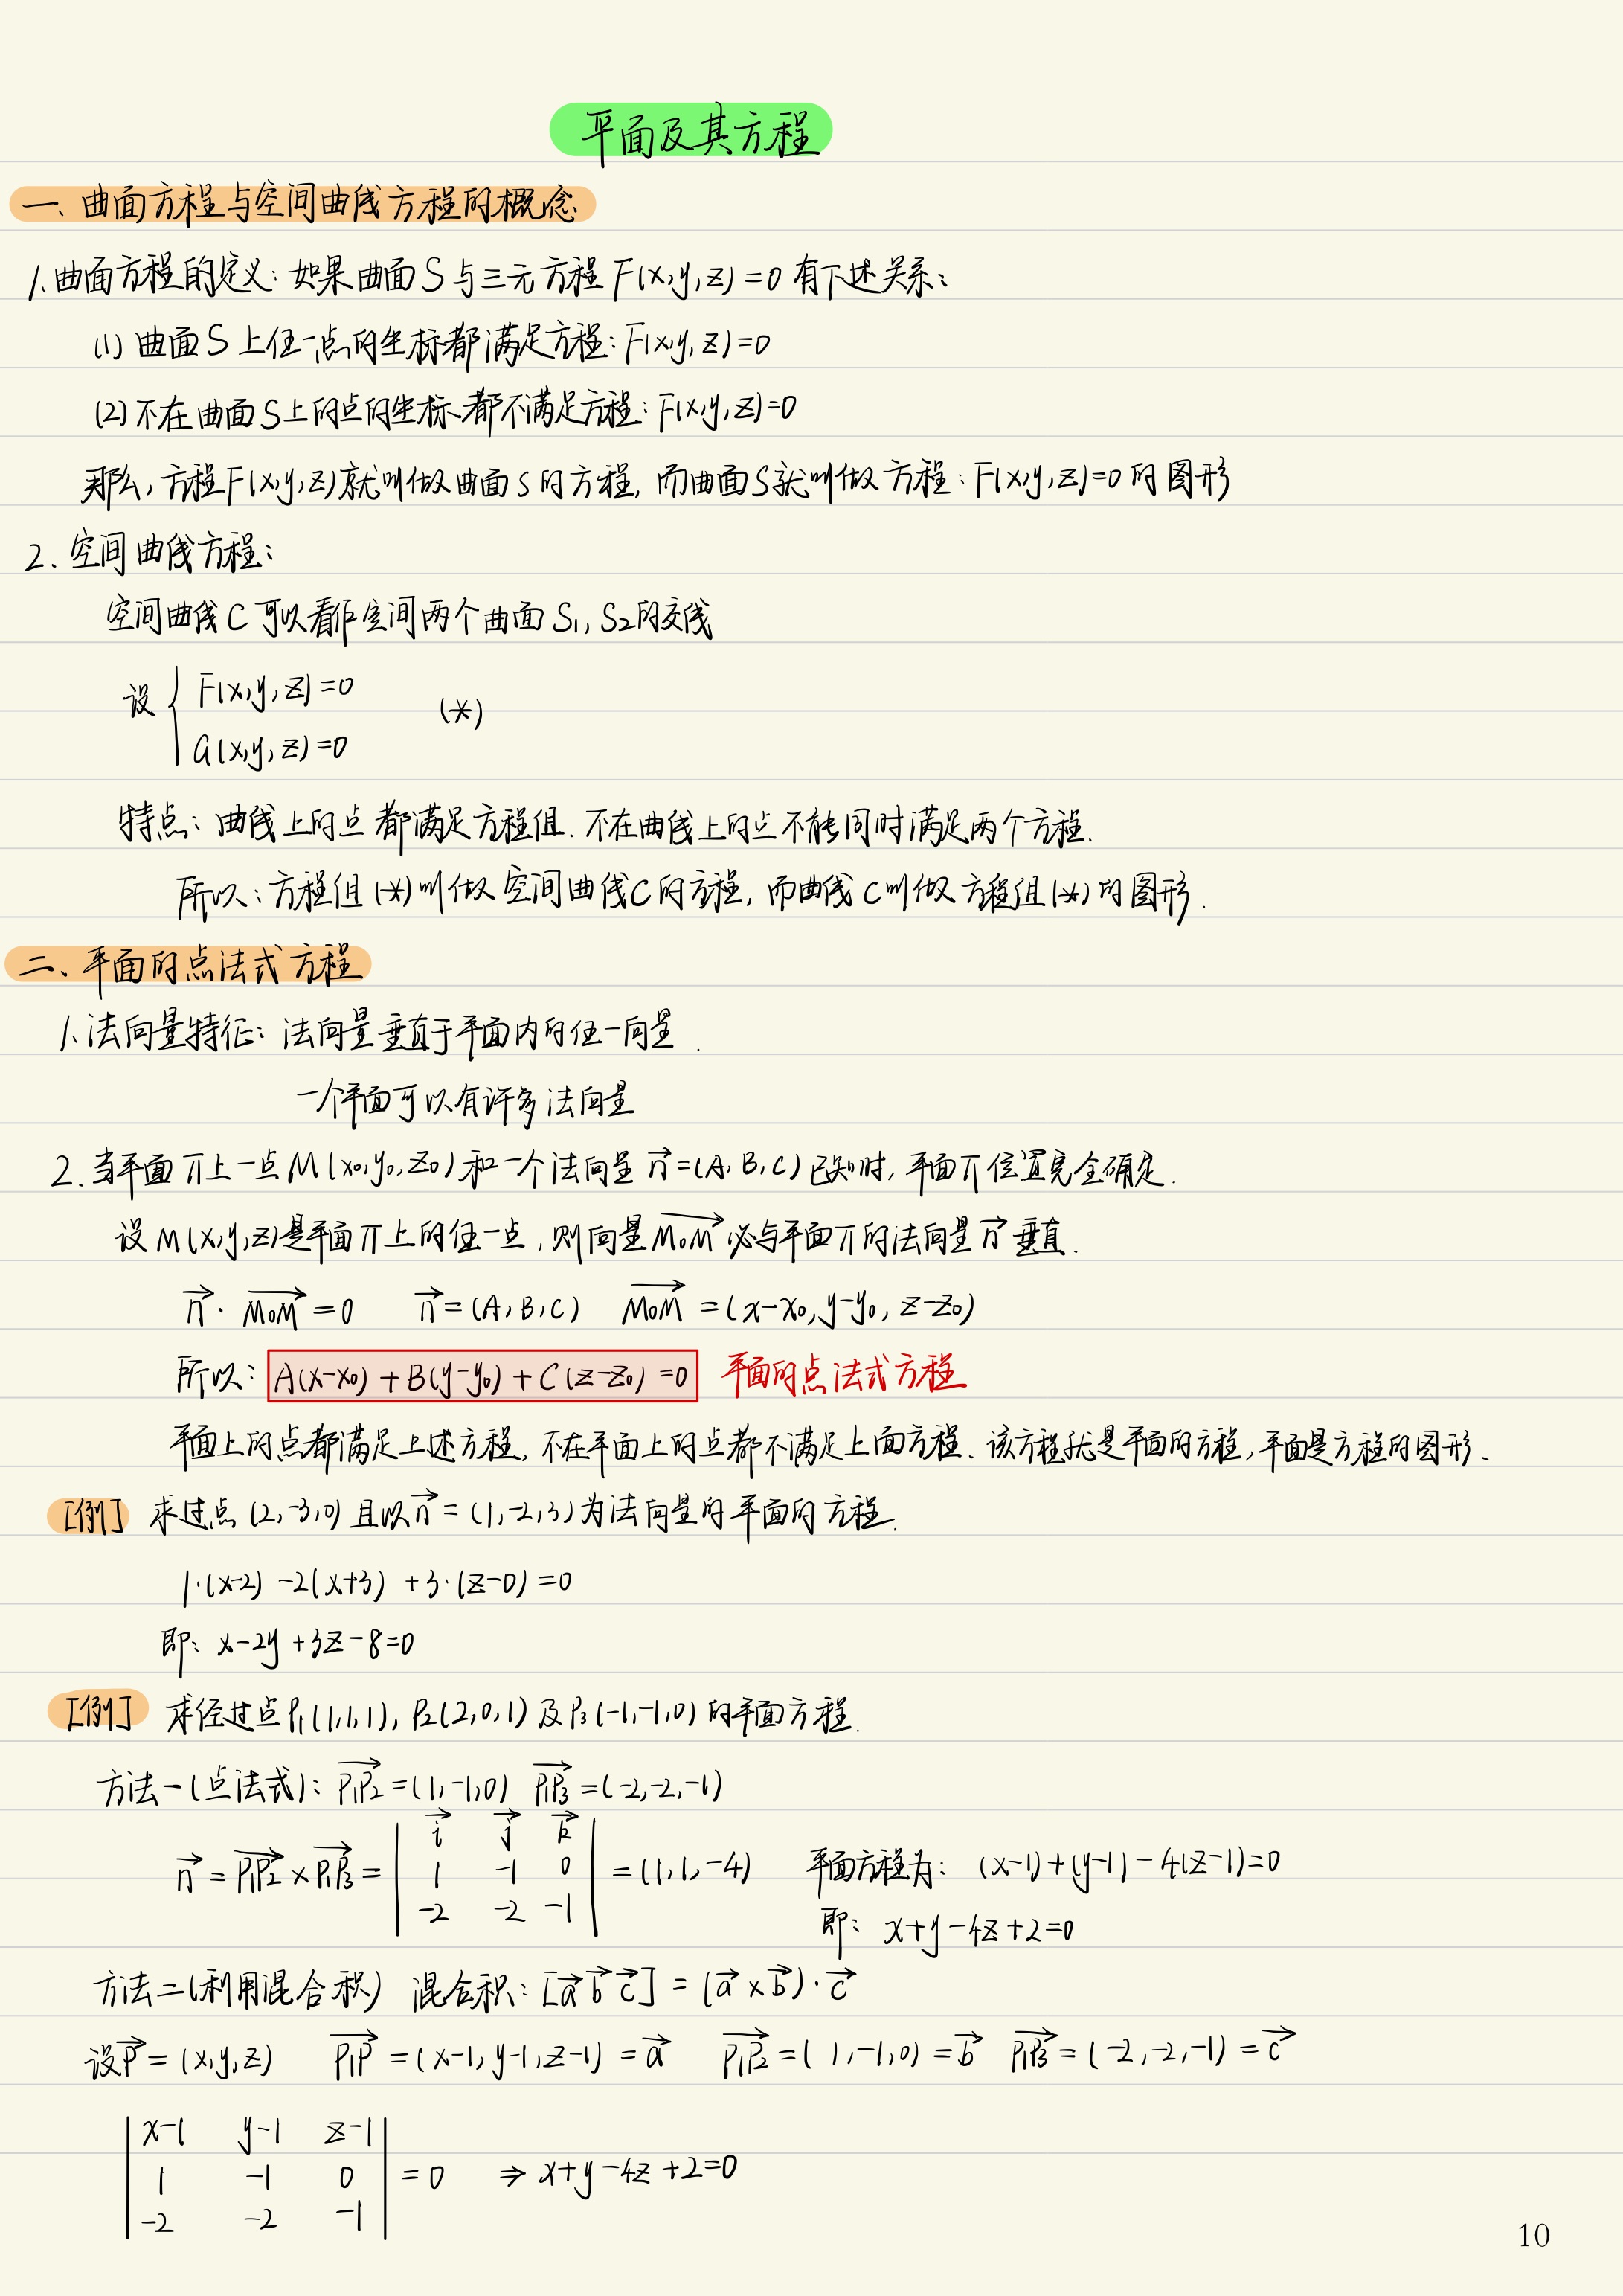 平面及其方程
一、曲面方程与空间曲线方程的概念
1.曲面方程的定义:如果曲面S与三元方程F(x,y,z)=0有下述关系:
(1)曲面S上任一点的坐标都满足方程:F(x,y,z)=0
(2)不在曲面S上的点的坐标都不满足方程:F(x,y,z)=0
那么,方程F(x,y,z)就叫做曲面S的方程,而曲面S就叫做方程:F(x,y,z)=0的图形
2.空间曲线方程:
空间曲线C可以看作空间两个曲面S₁,S₂的交线
设 { F(x,y,z)=0
G(x,y,z)=0 (*)
特点:曲线上的点都满足方程组.不在曲线上的点不能同时满足两个方程.
所以:方程组(*)叫做空间曲线C的方程,而曲线C叫做方程组(*)的图形.
二、平面的点法式方程
1.法向量特征:法向量垂直于平面内的任一向量.
一个平面可以有许多法向量
2.当平面π上一点M(x₀,y₀,z₀)和一个法向量n⃗=(A,B,C)已知时,平面π位置完全确定.
设M(x,y,z)是平面π上的任一点,则向量M₀M⃗必与平面π的法向量n⃗垂直.
n⃗·M₀M⃗=0 n⃗=(A,B,C) M₀M⃗=(x-x₀,y-y₀,z-z₀)
所以:A(x-x₀)+B(y-y₀)+C(z-z₀)=0 平面的点法式方程
平面上的点都满足上述方程,不在平面上的点都不满足上面方程、该方程就是平面的方程,平面是方程的图形、
[例] 求过点(2,-3,0)且以n⃗=(1,-2,3)为法向量的平面的方程.
1·(x-2)-2(x+3)+3·(z-0)=0
即:x-2y+3z-8=0
[例] 求经过点P₁(1,1,1),P₂(2,0,1)及P₃(-1,-1,0)的平面方程.
方法一(点法式):P₁P₂⃗=(1,-1,0) P₁P₃⃗=(-2,-2,-1)
n⃗=P₁P₂⃗×P₁P₃⃗=| i⃗ j⃗ k⃗ ; 1 -1 0 ; -2 -2 -1 |=(1,1,-4) 平面方程为:(x-1)+(y-1)-4(z-1)=0
即:x+y-4z+2=0
方法二(利用混合积) 混合积:[a⃗ b⃗ c⃗]=(a⃗×b⃗)·c⃗
设P⃗=(x,y,z) P₁P⃗=(x-1,y-1,z-1)=a⃗ P₁P₂⃗=(1,-1,0)=b⃗ P₁P₃⃗=(-2,-2,-1)=c⃗
| x-1 y-1 z-1 |
| 1 -1 0 | =0 ⇒ x+y-4z+2=0
| -2 -2 -1 |
10